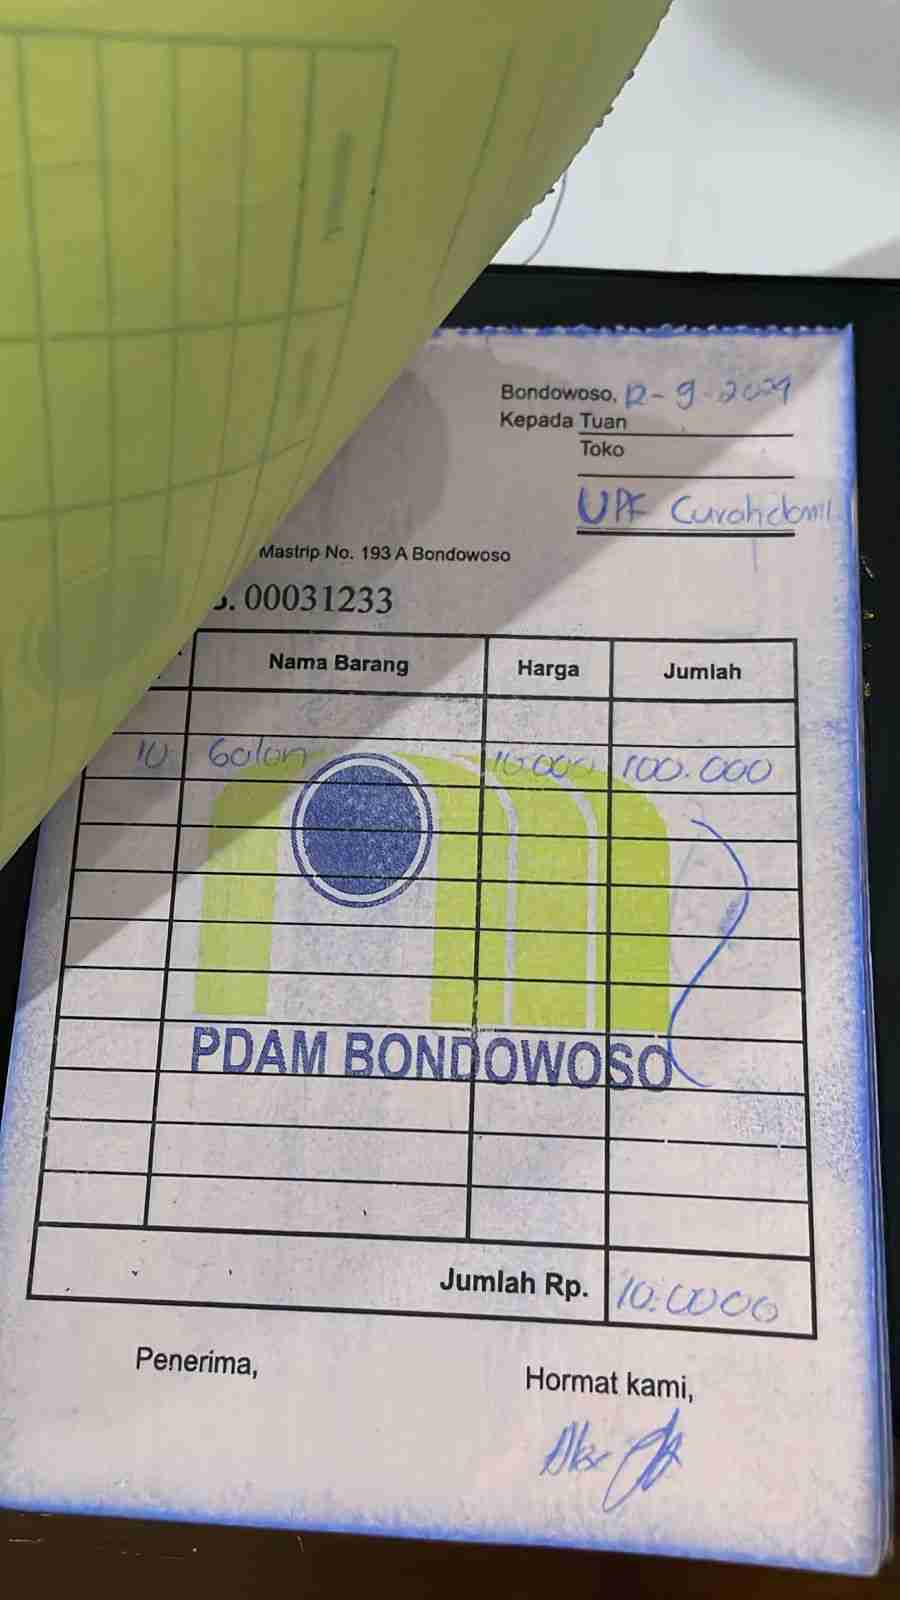 Bondowoso, 12-9-2024
Kepada Tuan
Toko
UPF Curahdami
Mastrip No. 193 A Bondowoso
. 00031233
Nama Barang Harga Jumlah
10 Galon 10.000 100.000
PDAM BONDOWOSO
Jumlah Rp. 10.0000
Penerima,
Hormat kami,